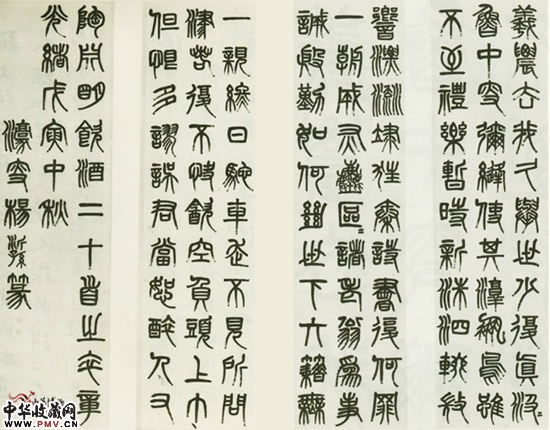 羲農去我久舉世少復真汲〻
魯中叟彌縫使其淳鳳鳥雖
不至禮樂暫時新洙泗輟微
響漂流逮狂秦詩書復何罪
一朝成灰塵區〻諸老翁為事
誠殷勤如何絕世下六籍無
一親終日馳車走不見所問
津若復不快飲空負頭上巾
但恨多謬誤君當恕醉人又
陶淵明飲酒二十首之卒章
光緒戊寅中秋
濠叟楊沂孫篆
中华收藏网
www.PMV.CN